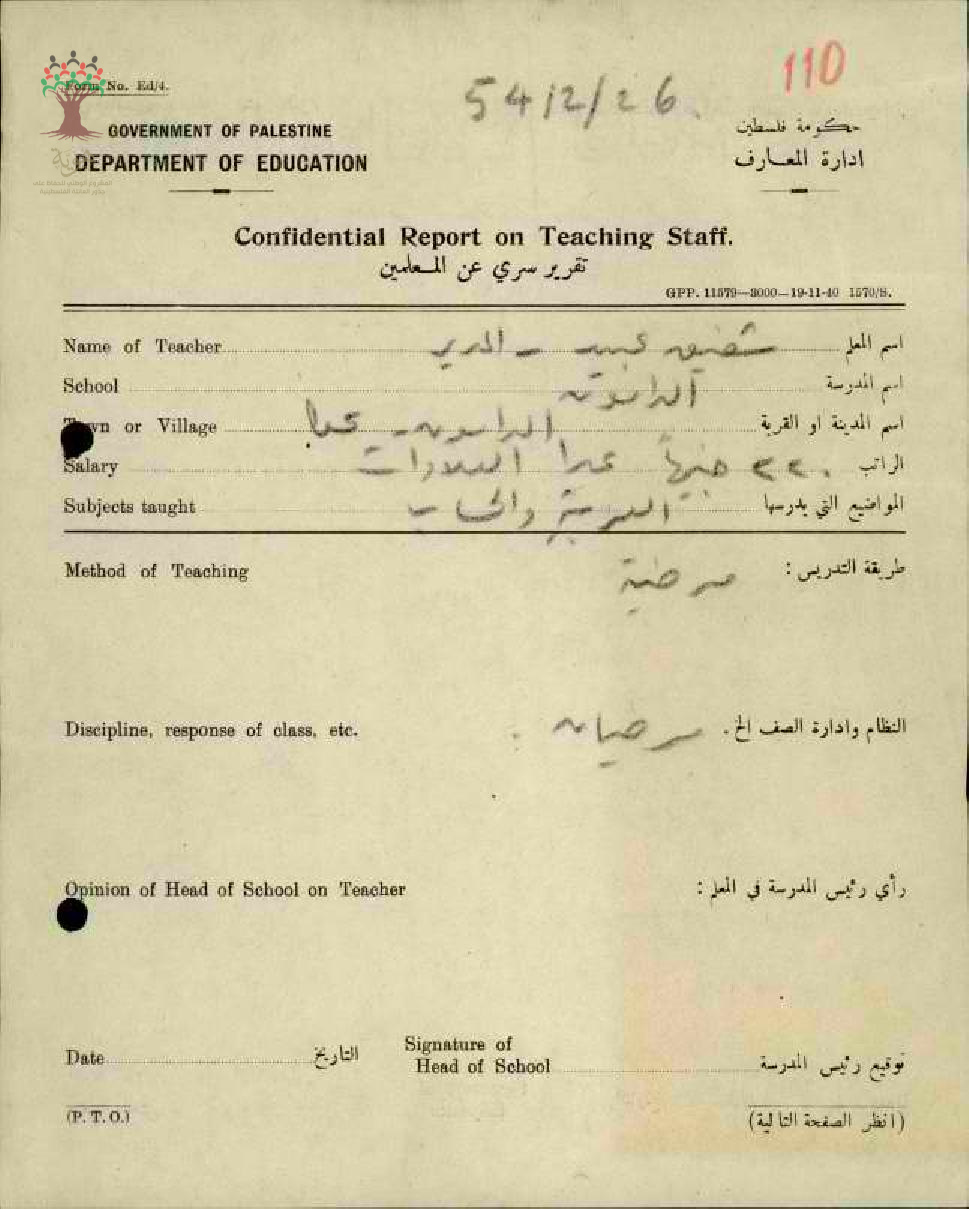 110
54/2/26
Form No. Ed/4.
GOVERNMENT OF PALESTINE
حكومة فلسطين
DEPARTMENT OF EDUCATION
ادارة المعارف
Confidential Report on Teaching Staff.
تقرير سري عن المعلمين
GPP. 11579—3000—19-11-40 1570/S.
Name of Teacher شفيق عبيد - المدير اسم المعلم
School الدامون اسم المدرسة
Town or Village الدامون - عكا اسم المدينة او القرية
Salary ٢٢٠ جنيهاً عدا العلاوات الراتب
Subjects taught العربية والحساب المواضيع التي يدرسها
Method of Teaching مرضية طريقة التدريس :
Discipline, response of class, etc. مرضيان . النظام وادارة الصف الخ.
Opinion of Head of School on Teacher رأي رئيس المدرسة في المعلم :
Date التاريخ Signature of Head of School توقيع رئيس المدرسة
(P. T. O.) (انظر الصفحة التالية)